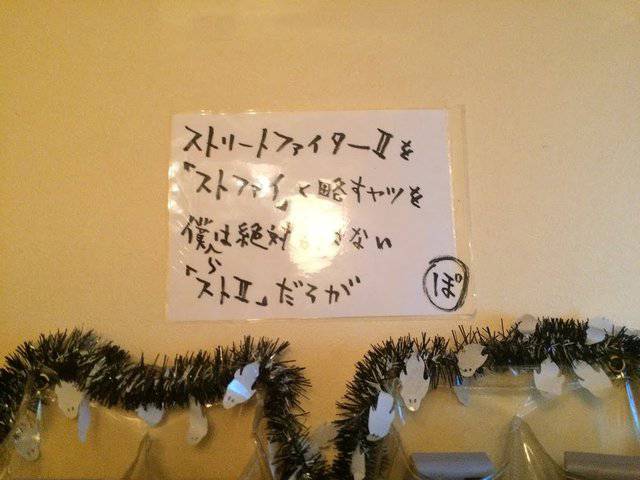 ストリートファイターⅡを
「ストファイ」と略すヤツを
僕らは絶対 さない
「ストⅡ」だろが
ぽ